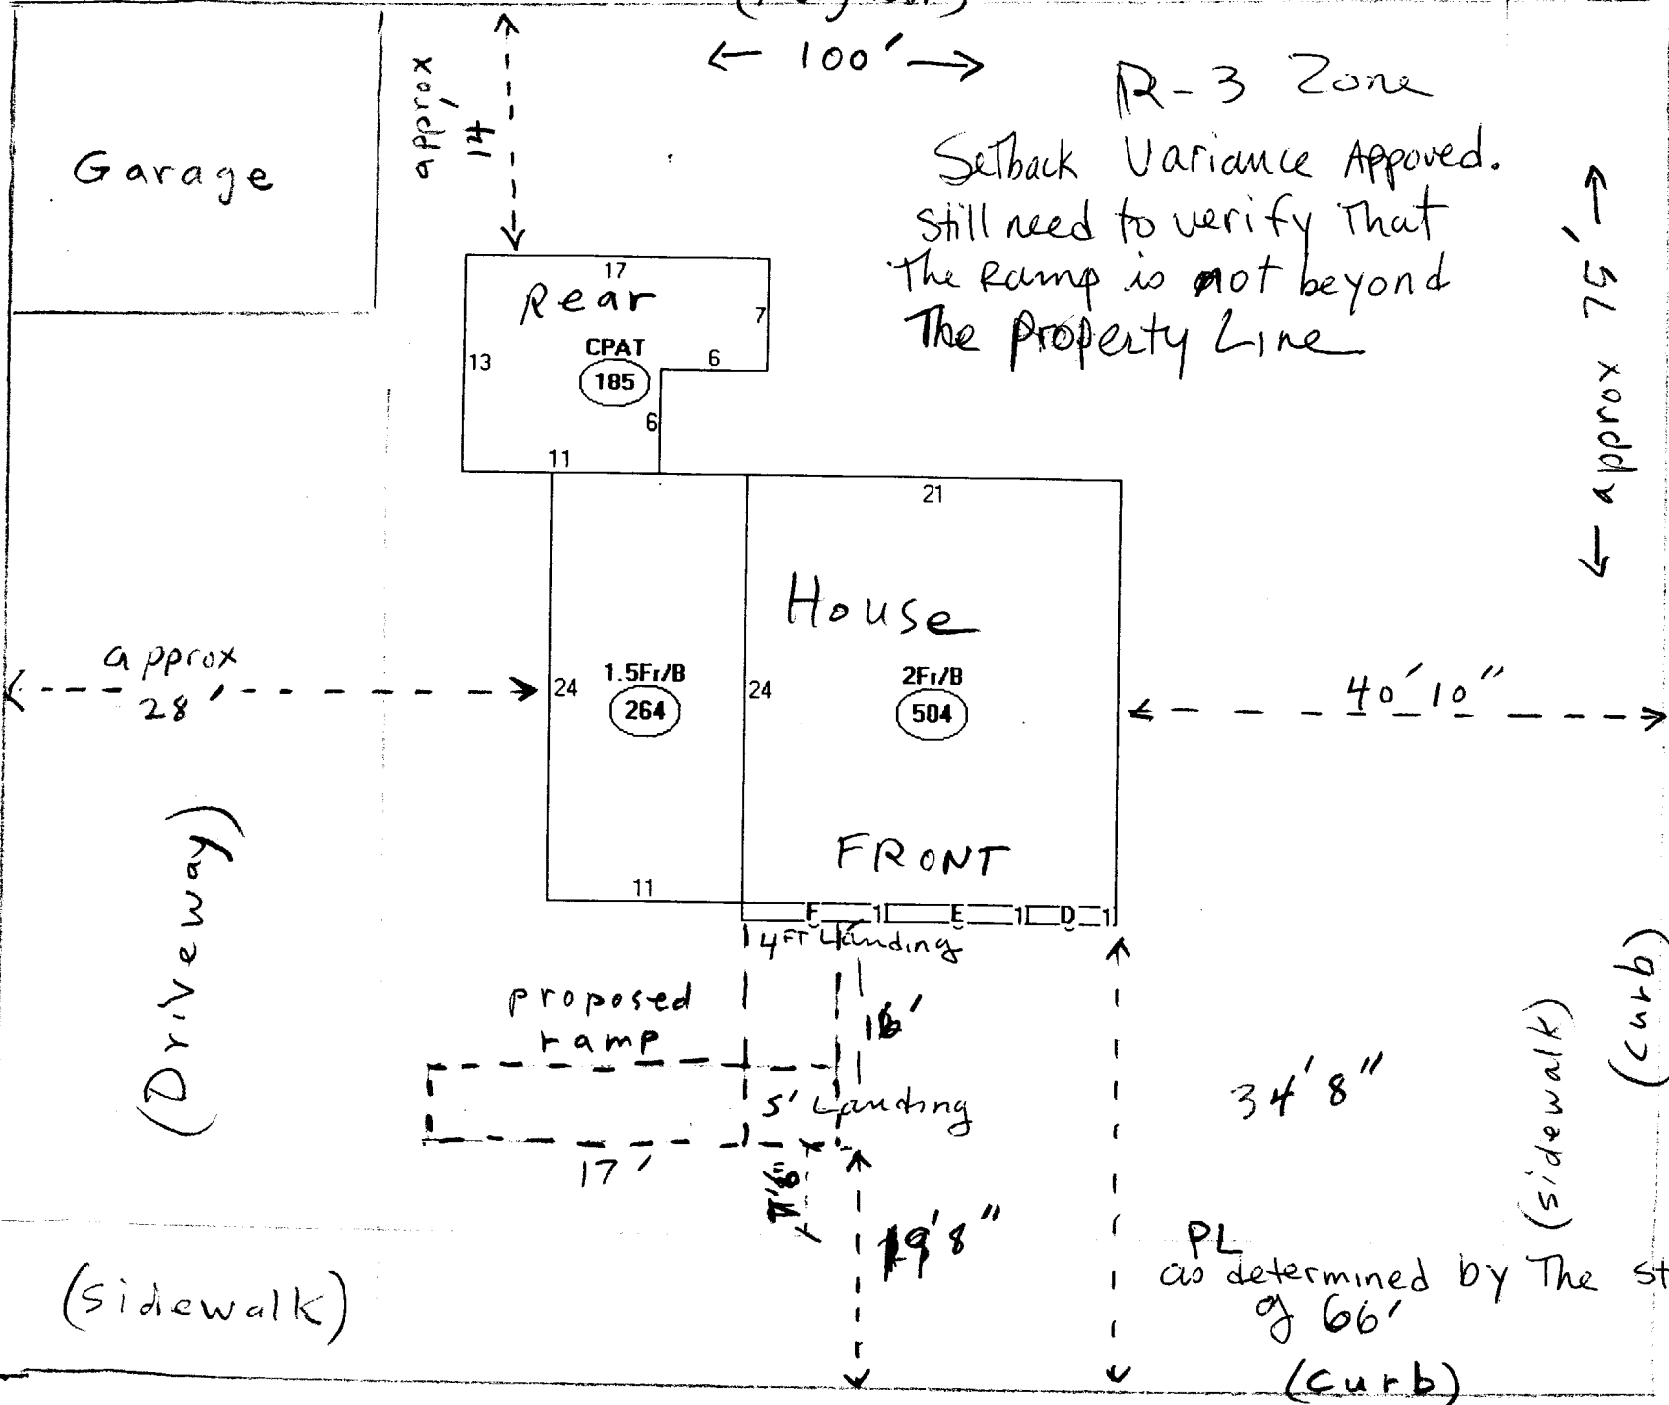 100'
R-3 Zone
Setback Variance Appoved.
still need to verify That
The Ramp is not beyond
The Property Line
approx 75'
approx
14'
Garage
17
Rear
7
CPAT
185
6
13
6
11
21
House
approx
28'
24
1.5Fr/B
264
24
2Fr/B
504
40' 10"
FRONT
11
F 1 E 1 D 1
4 FT Landing
(Driveway)
proposed
ramp
16'
5' Landing
17'
34' 8"
19' 8"
(sidewalk)
(curb)
PL
as determined by The st
of 66'
(sidewalk)
(curb)